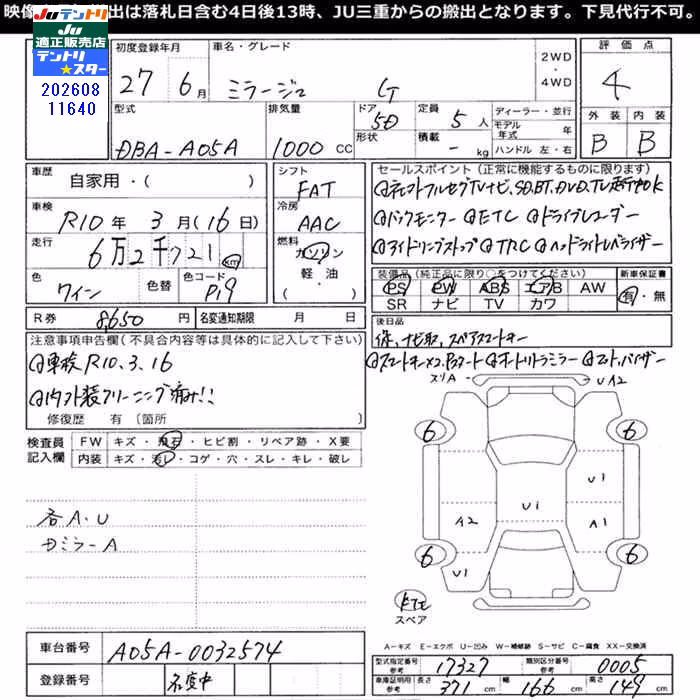 映像 出は落札日含む4日後13時、JU三重からの搬出となります。下見代行不可。
JUテントリ
JU適正販売店
テントリ★スター
202608
11640
初度登録年月
27年6月
車名・グレード
ミラージュ G
2WD・4WD
評価点
4
外装 内装
B B
型式
DBA-A05A
排気量
1000 CC
ドア 5D
形状
定員 5人
積載 - kg
ディーラー・並行
モデル年式 年
ハンドル 左・右
車歴
自家用・( )
車検
R10年3月(16日)
走行
6万2千721km
色
ワイン
色替
色コード
P19
シフト
FAT
冷房
AAC
燃料
ガソリン
軽油
・( )
セールスポイント(正常に機能するものに限ります)
バックモニター ETC ドライブレコーダー
アイドリングストップ TRC ヘッドライトレベライザー
装備品(純正品に限り○をつけてください)
PS PW ABS エアB AW
SR ナビ TV カワ
新車保証書
有・無
R券 8,650円
名変通知期限 月 日
後日品
保、ナビ取、スペアスマートキー
スマートキー×2 オートリトラミラー
注意事項申告欄(不具合内容等は具体的に記入して下さい)
車検R10.3.16
内外装クリーニング痛み!!
修復歴 有 〔箇所
検査員記入欄
FW キズ・飛石・ヒビ割・リペア跡・X要
内装 キズ・汚レ・コゲ・穴・スレ・キレ・破レ
各A・U
ミラーA
スリA
UA2
6
6
U1
U1
A2
A1
6
6
U1
スペア
車台番号
A05A-0032574
登録番号
A-キズ E-エクボ U-凹み W-補修跡 S-サビ C-腐食 XX-交換済
型式指定番号 参考 17327
類別区分番号 参考 0005
車庫証明用 参考 長さ 371cm 幅 166cm 高さ 149cm